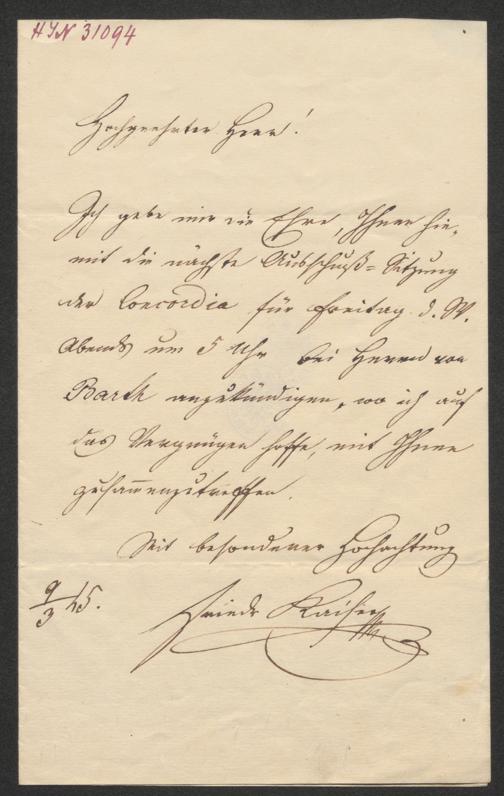 HIN 31094
Hochgeehrter Herr!
Ich gebe mir die Ehre, Ihnen hie-
mit die nächste Ausschuß-Sitzung
der Concordia für Freitag d. M.
Abends um 5 Uhr bei Herrn von
Barth anzukündigen, wo ich auf
das Vergnügen hoffe, mit Ihnen
zusammenzutreffen.
Mit besonderer Hochachtung
9/3 45.
Friedr Kaiser